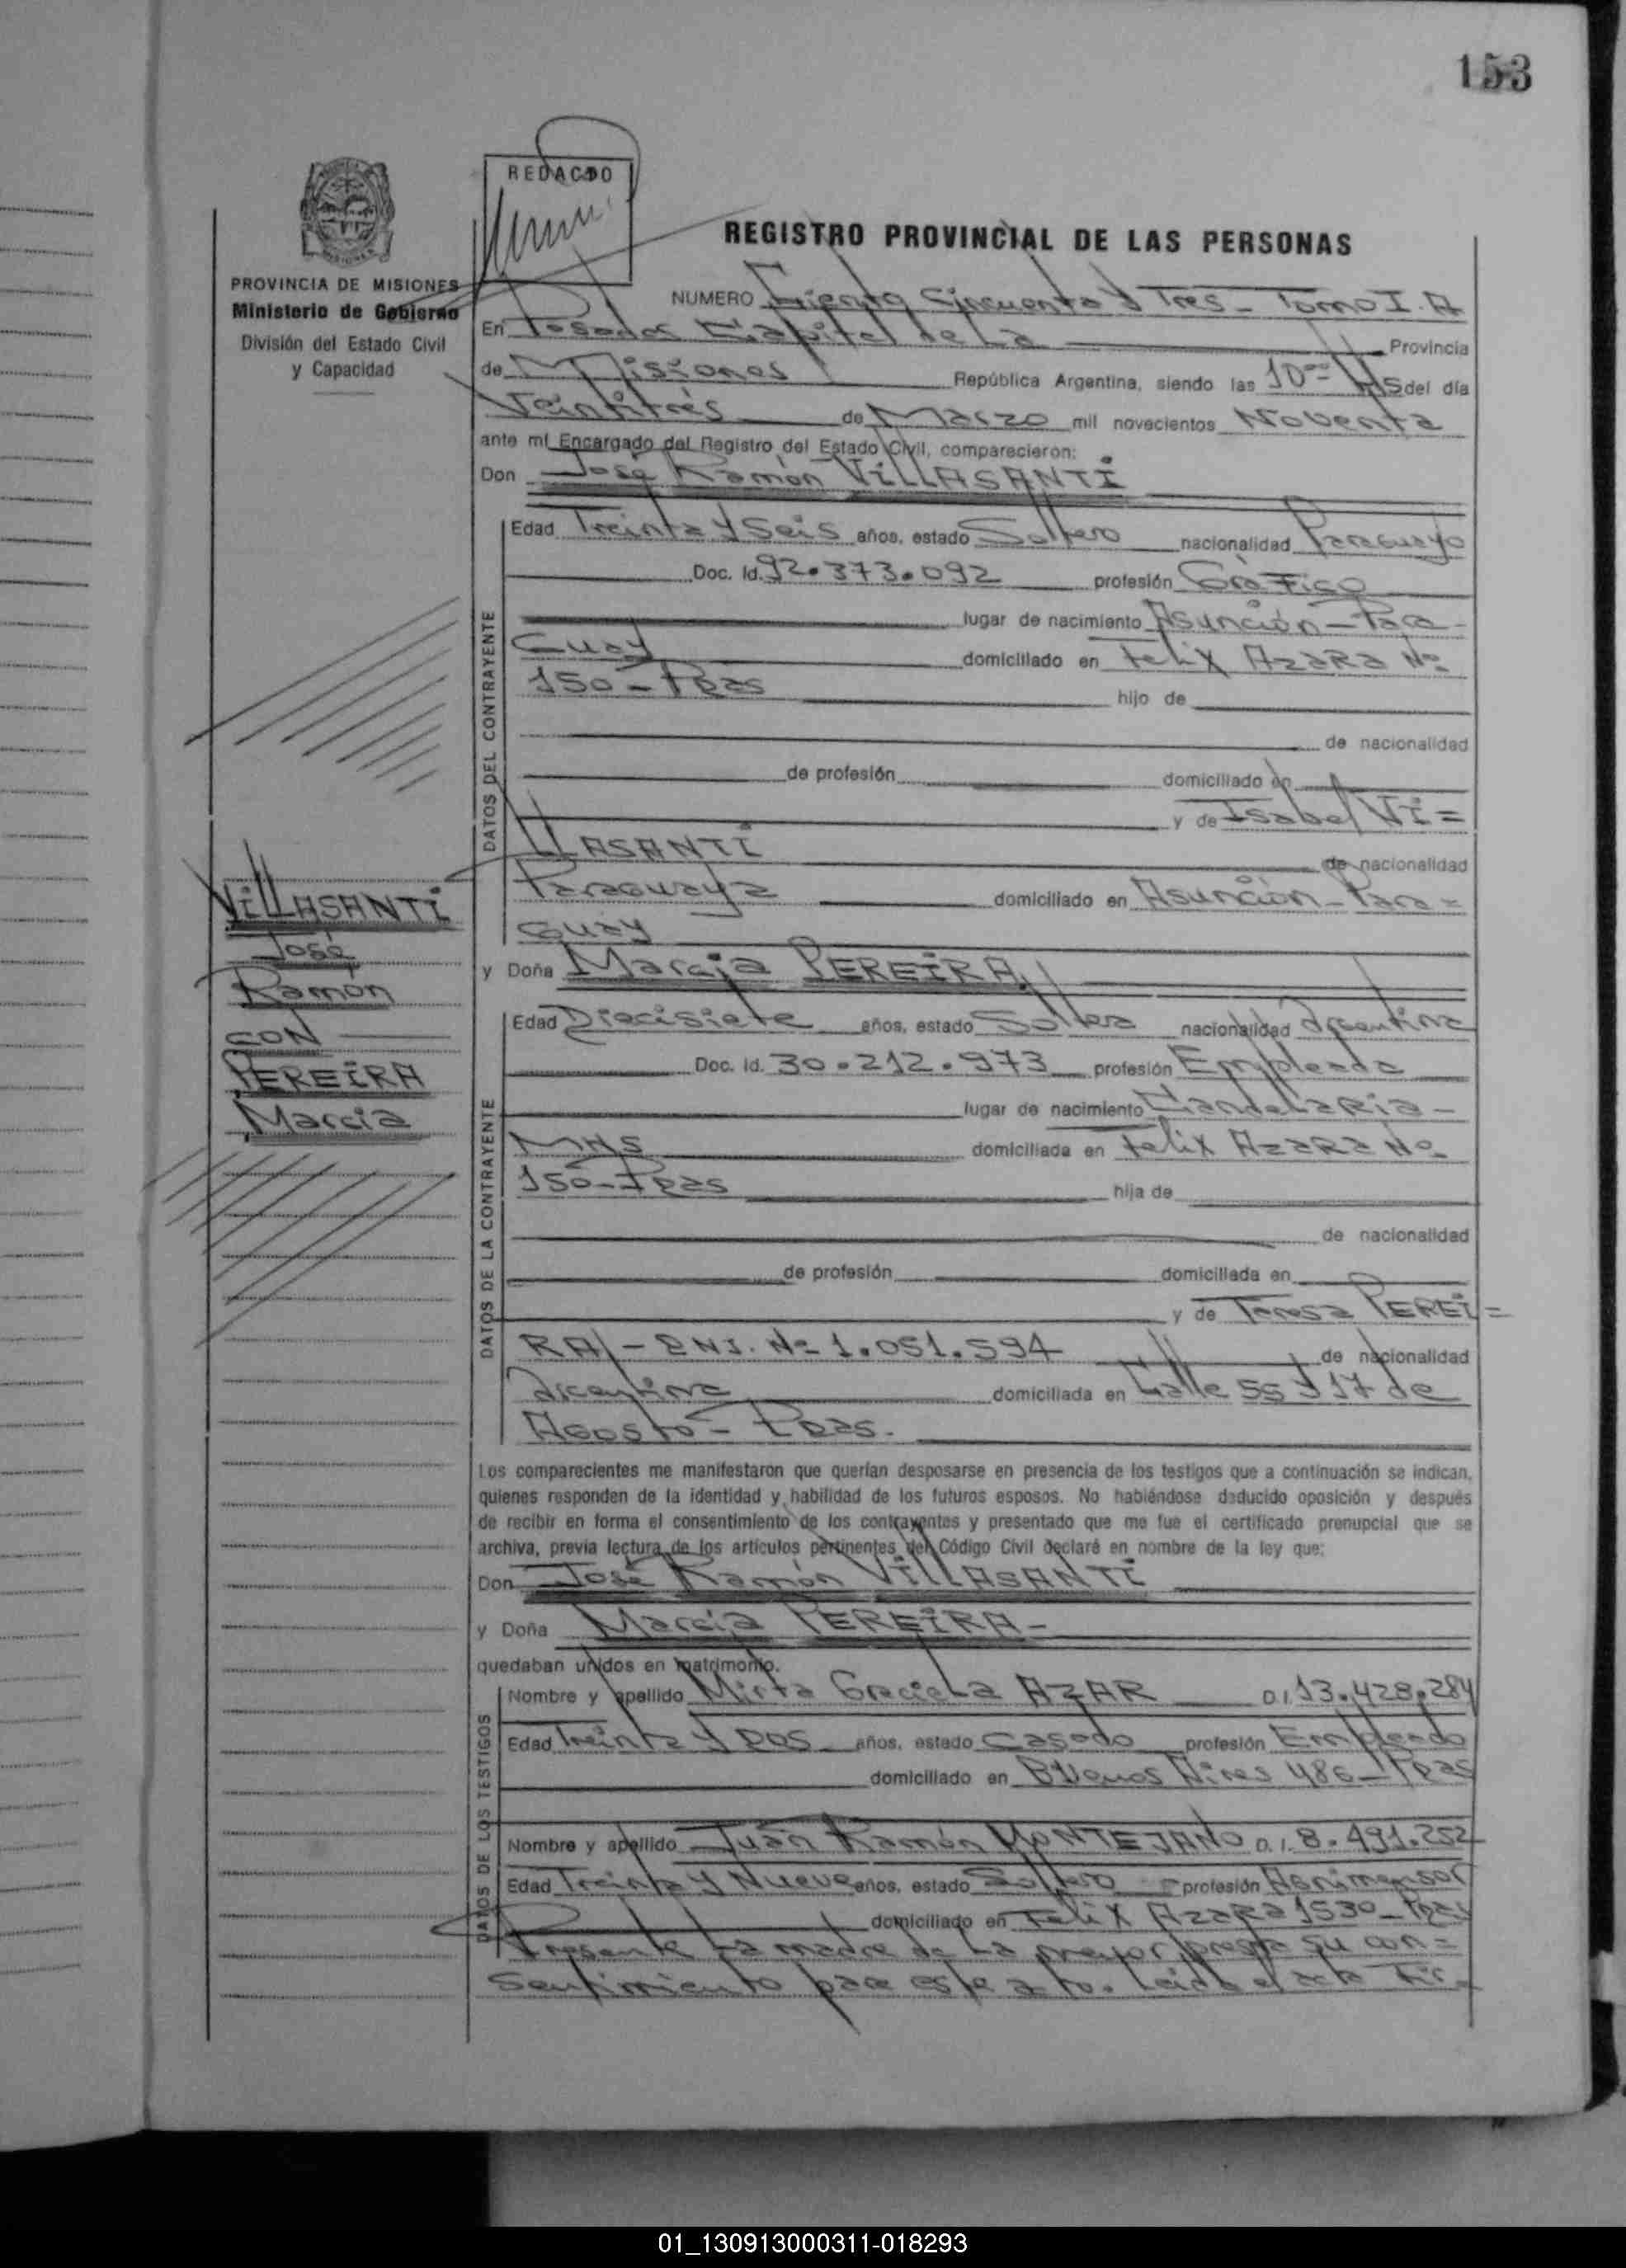 153
REDACDO
REGISTRO PROVINCIAL DE LAS PERSONAS
PROVINCIA DE MISIONES
Ministerio de Gobierno
División del Estado Civil
y Capacidad
NUMERO Ciento Cincuenta y Tres - Tomo I. A
En Posadas Capital de La Provincia
de Misiones República Argentina, siendo las 10 Hs del día
Veintitrés de Marzo mil novecientos Noventa
ante mí Encargado del Registro del Estado Civil, comparecieron:
Don José Ramón VILLASANTI
DATOS DEL CONTRAYENTE
Edad Treinta y Seis años, estado Soltero nacionalidad Paraguayo
Doc. Id. 92.373.092 profesión Gráfico
lugar de nacimiento Asunción - Para-
guay domiciliado en Felix Azara Nº
150 - Pdas hijo de
de nacionalidad
de profesión domiciliado en
y de Isabel VI=
LLASANTI de nacionalidad
Paraguaya domiciliado en Asunción - Para=
guay
VILLASANTI
José
Ramón
CON
PEREIRA
Marcia
y Doña Marcia PEREIRA
DATOS DE LA CONTRAYENTE
Edad Diecisiete años, estado Soltera nacionalidad Argentina
Doc. Id. 30.212.973 profesión Empleada
lugar de nacimiento Candelaria -
MNS domiciliada en Felix Azara Nº
150 - Pdas hija de
de nacionalidad
de profesión domiciliada en
y de Teresa PEREI=
RA - DNI. Nº 1.051.594 de nacionalidad
Argentina domiciliada en Calle 55 y 17 de
Agosto - Pdas.
Los comparecientes me manifestaron que querían desposarse en presencia de los testigos que a continuación se indican,
quienes responden de la identidad y habilidad de los futuros esposos. No habiéndose deducido oposición y después
de recibir en forma el consentimiento de los contrayentes y presentado que me fue el certificado prenupcial que se
archiva, previa lectura de los artículos pertinentes del Código Civil declaré en nombre de la ley que:
Don José Ramón VILLASANTI
y Doña Marcia PEREIRA -
quedaban unidos en matrimonio.
DATOS DE LOS TESTIGOS
Nombre y apellido Mirta Graciela AZAR D.I. 13.428.284
Edad Treinta y Dos años, estado Casado profesión Empleado
domiciliado en Buenos Aires 486 - Pdas
Nombre y apellido Juan Ramón MONTEJANO D.I. 8.491.252
Edad Treinta y Nueve años, estado Soltero profesión Agrimensor
domiciliado en Felix Azara 1530 - Pdas
Presente La madre de La menor presta su con=
sentimiento para este acto. Leida el acta Fir=
01_130913000311-018293